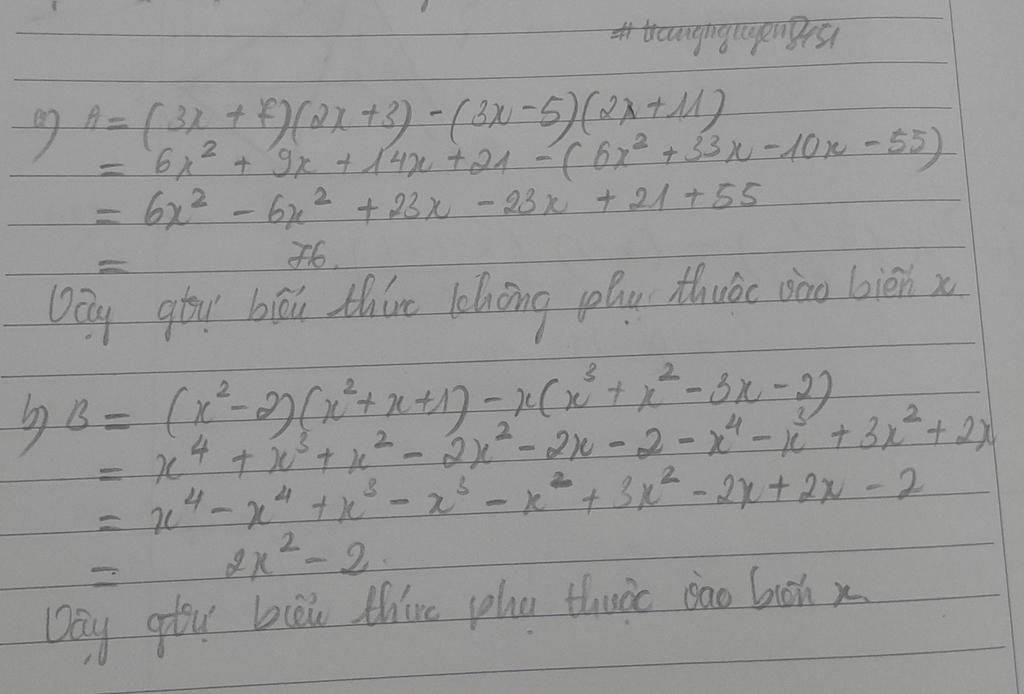 #trangnguyen8151
a) A = (3x + 7)(2x + 3) - (3x - 5)(2x + 11)
= 6x² + 9x + 14x + 21 - (6x² + 33x - 10x - 55)
= 6x² - 6x² + 23x - 23x + 21 + 55
= 76.
Vậy gtrị biểu thức không phụ thuộc vào biến x
b) B = (x² - 2)(x² + x + 1) - x(x³ + x² - 3x - 2)
= x⁴ + x³ + x² - 2x² - 2x - 2 - x⁴ - x³ + 3x² + 2x
= x⁴ - x⁴ + x³ - x³ - x² + 3x² - 2x + 2x - 2
= 2x² - 2.
Vậy gtrị biểu thức phụ thuộc vào biến x